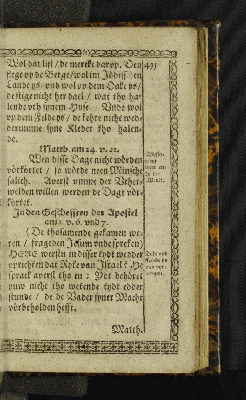 Wol dat list / de mercke darvp. Den
stege vp de Berge / wol im Jödischen
Lande ys / vnd wol vp dem Dake ys /
de stige nicht her dael / wat tho ha-
lende vth synem Huse. Vnde wol
vp dem Felde ys / de kehre nicht wed-
derumme syne Kleder tho halen-
de.
Matth. am 24. v. 22.
Wen disse Dage nicht würden
vörkortet / so wörde neen Minsche
salich. Averst vmme der Vther-
welden willen werden de Dage vör-
körtet.
In den Geschefften der Apostel
am 1. v. 6. vnd 7.
(De thosamende gekamen we-
ren / frageden Jesum vnde spreken)
HERE werstu in disser tydt wedder
vprichten dat Ryke van Israel? He
sprack averst tho en: Ydt behöret
juw nicht tho wetende tydt edder
stunde / de de Vader syner Macht
vörbeholden hefft.
Matth.